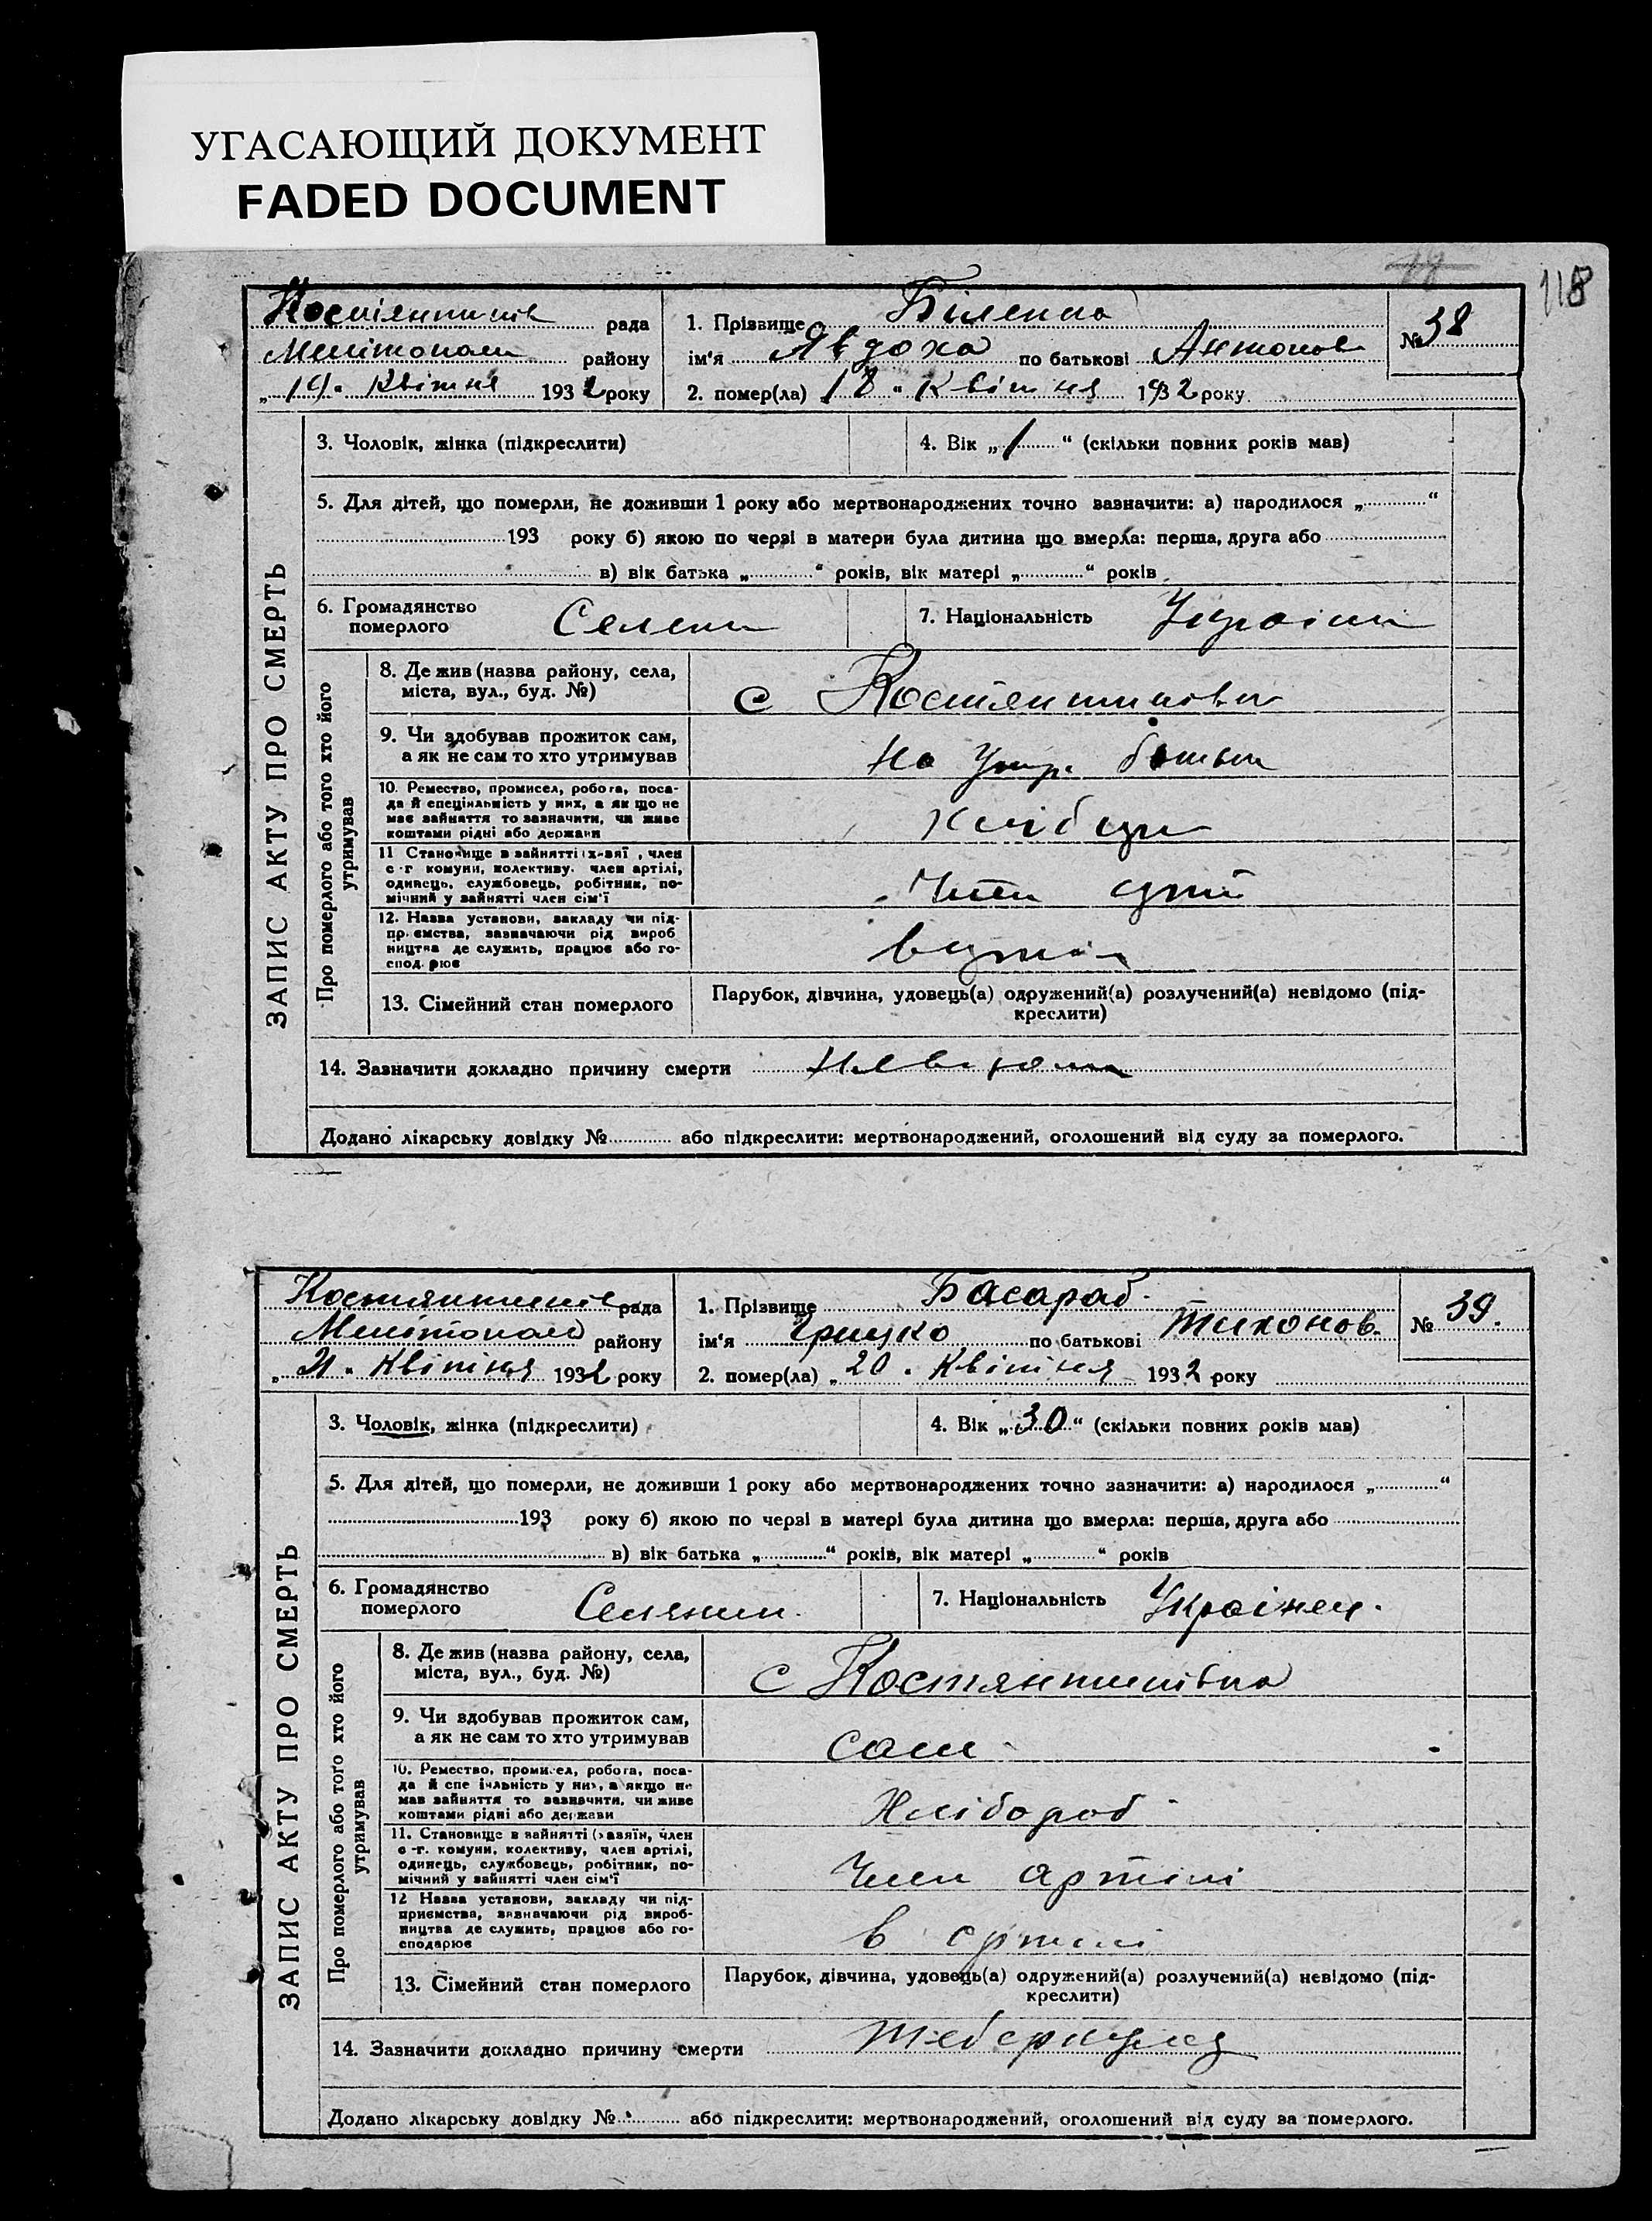 УГАСАЮЩИЙ ДОКУМЕНТ
FADED DOCUMENT
18
118
рада
Мелітопол району
„19" Квітня 1932 року
1. Прізвище Біленко
ім'я Явдоха по батькові Антонов
№ 38
2. помер(ла) 18 " Квітня 1932 року
ЗАПИС АКТУ ПРО СМЕРТЬ
3. Чоловік, жінка (підкреслити)
4. Вік „1" (скільки повних років мав)
5. Для дітей, що померли, не доживши 1 року або мертвонароджених точно зазначити: а) народилося „ "
193 року б) якою по черзі в матери була дитина що вмерла: перша, друга або
в) вік батька „ " років, вік матері „ " років
6. Громадянство
померлого
Селян
7. Національність
Україн
Про померлого або того хто його
утримував
8. Де жив (назва району, села,
міста, вул., буд. №)
с Костянтинівка
9. Чи здобував прожиток сам,
а як не сам то хто утримував
На утр. батька
10. Ремество, промисел, робота, поса-
да й спеціяльність у них, а як що не
має зайняття то зазначити, чи живе
коштами рідні або держави
11 Становище в зайнятті (х-зяї , член
с-г комуни, колективу. член артілі,
одинець, службовець, робітник, по-
мічний у зайнятті член сім'ї
12. Назва установи, закладу чи під-
пр.ємства, зазначаючи рід вироб
ництва де служить, працює або го-
спод.рює
13. Сімейний стан померлого
Парубок, дівчина, удовець(а) одружений(а) розлучений(а) невідомо (під-
креслити)
14. Зазначити докладно причину смерти Невідома
Додано лікарську довідку № або підкреслити: мертвонароджений, оголошений від суду за померлого.
Костянтинів рада
Мелітопол району
„21" Квітня 1932 року
1. Прізвище Басараб
ім'я Грицко по батькові Тихонов.
№ 39.
2. помер(ла) „20 " Квітня 1932 року
ЗАПИС АКТУ ПРО СМЕРТЬ
3. Чоловік, жінка (підкреслити)
4. Вік „30" (скільки повних років мав)
5. Для дітей, що померли, не доживши 1 року або мертвонароджених точно зазначити: а) народилося „ "
193 року б) якою по черзі в матері була дитина що вмерла: перша, друга або
в) вік батька „ " років, вік матері „ " років
6. Громадянство
померлого
Селянин.
7. Національність
Украінец.
Про померлого або того хто його
утримував
8. Де жив (назва району, села,
міста, вул., буд. №)
с Костянтинівка
9. Чи здобував прожиток сам,
а як не сам то хто утримував
Сам
10. Ремество, промисел, робота, поса-
да й спе іяльність у них, а якщо не
мав зайняття то зазначити, чи живе
коштами рідні або держави
Хлібороб
11. Становище в зайнятті (хазяїн, член
с-г. комуни, колективу, член артілі,
одинець, службовець, робітник, по-
мічний у зайнятті член сім'ї
Член артілі
12 Назва установи, закладу чи під-
приємства, зазначаючи рід вироб-
ництва де служить, працює або го-
сподарює
в артілі
13. Сімейний стан померлого
Парубок, дівчина, удовець(а) одружений(а) розлучений(а) невідомо (під-
креслити)
14. Зазначити докладно причину смерти
Додано лікарську довідку № або підкреслити: мертвонароджений, оголошений від суду за померлого.